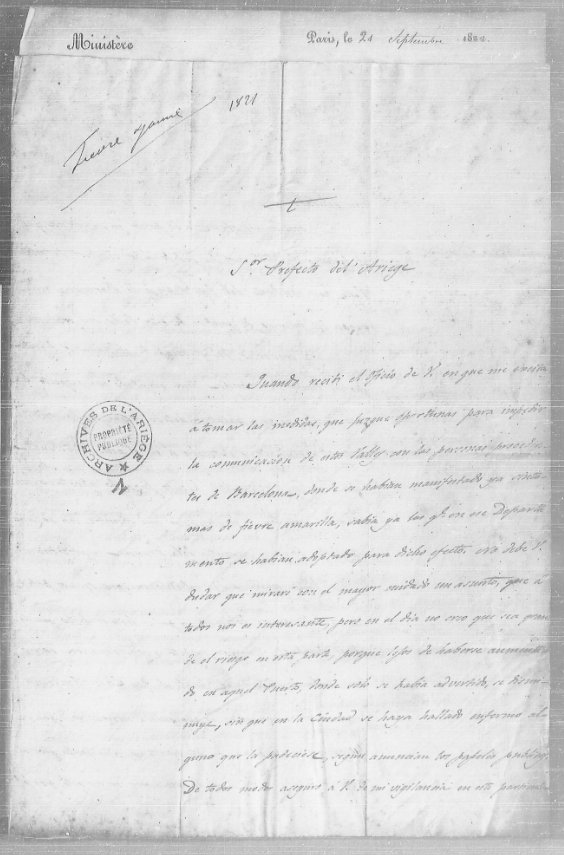 Ministère
Paris, le 21 Septembre 182
Fievre jaune
1821
S.or Prefecto del' Ariege
Quando recibí el Oficio de V. en que me encita
á tomar las medidas, que juzgue oportunas para impedir
la comunicacion de estos Valles con las personas proceden
tes de Barcelona, donde se habian manifestado ya sinto-
mas de fievre amarilla, sabia ya las q.e en ese Departa
mento se habian adoptado para dicho efecto. no debe V.
dudar que miraré con el mayor cuidado un asunto, que á
todos nos es interesante, pero en el dia no creo que sea gran
de el riesgo en esta parte, porque lejos de haberse aumenta
do en aquel Puerto, donde solo se habia advertido, se dismi-
nuye, sin que en la Ciudad se haya hallado enfermo al
guno que la padeciese, segun anuncian los papeles publicos.
De todos modos aseguro á V. de mi vigilancia en este particular
ARCHIVES DE L'ARIÈGE
PROPRIÉTÉ
PUBLIQUE